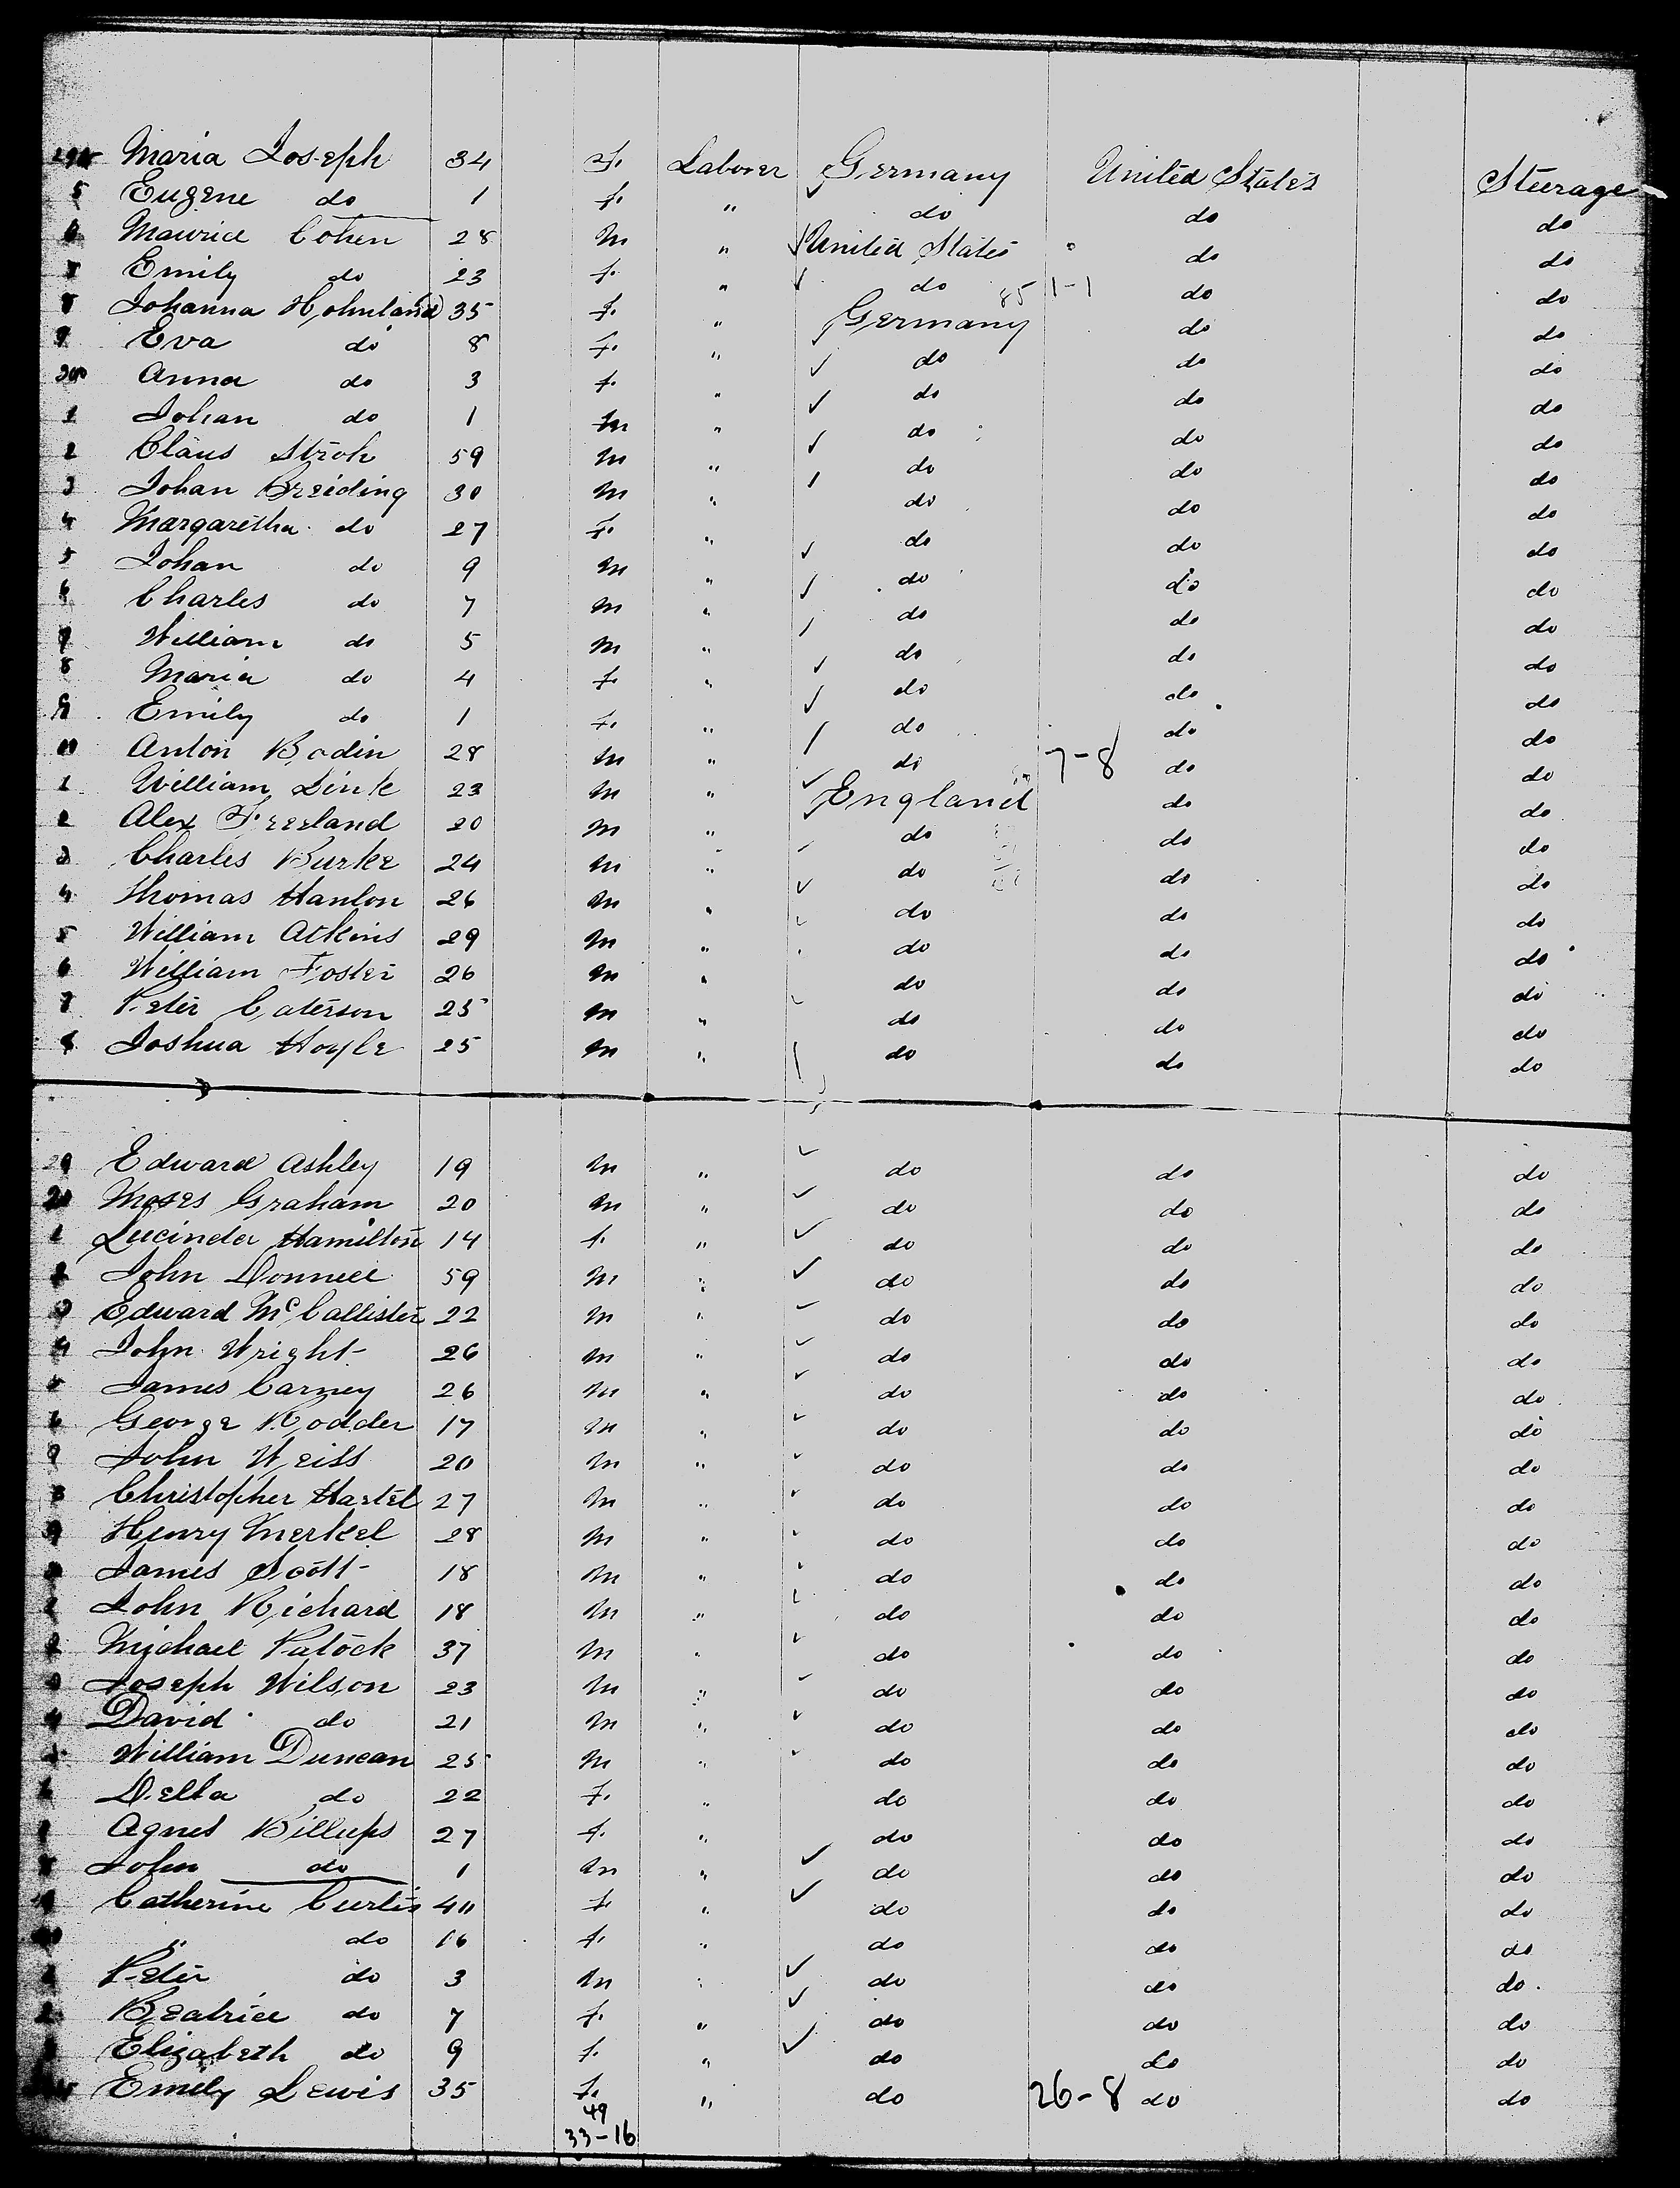 Maria Joseph 34 F. Laborer Germany United States Steerage
5 Eugene do 1 f. " do do do
6 Maurice Cohen 28 m " United States do do
7 Emily do 23 f. " do 85 1-1 do do
8 Johanna Hohnland 35 f. " Germany do do
9 Eva do 8 f. " do do do
Anna do 3 f. " do do do
1 Johan do 1 m " do do do
2 Claus Stroh 59 m " do do do
3 Johan Breiding 30 m " do do do
4 Margaretha do 27 F. " do do do
5 Johan do 9 m " do do do
6 Charles do 7 m " do do do
7 William do 5 m " do do do
8 Maria do 4 f. " do do do
9 Emily do 1 f. " do do do
Anton Bodin 28 m " do 7-8 do do
1 William Dink 23 m " England do do
2 Alex Freeland 20 m " do do do
3 Charles Burke 24 m " do do do
4 Thomas Hanlon 26 m " do do do
5 William Atkins 29 m " do do do
6 William Foster 26 m " do do do
7 Peter Caterson 25 m " do do do
8 Joshua Hoyle 25 m " do do do
29 Edward Ashley 19 m " do do do
Moses Graham 20 m " do do do
1 Lucinda Hamilton 14 f. " do do do
2 John Donnell 59 m " do do do
3 Edward McCallister 22 m " do do do
4 John Wright 26 m " do do do
5 James Carney 26 m " do do do
6 George Rodder 17 m " do do do
7 John Weiss 20 m " do do do
8 Christopher Hartel 27 m " do do do
9 Henry Merkel 28 m " do do do
James Scott 18 m " do do do
John Richard 18 m " do do do
2 Michael Patock 37 m " do do do
3 Joseph Wilson 23 m " do do do
4 David do 21 m " do do do
William Duncan 25 m " do do do
6 Della do 22 F. " do do do
Agnes Billups 27 f. " do do do
8 John do 1 m " do do do
Catherine Curtis 40 f. " do do do
" do 16 f. " do do do
Peter do 3 m " do do do
2 Beatrice do 7 f. " do do do
Elizabeth do 9 f. " do do do
Emily Lewis 35 f. " do 26-8 do do
49
33-16